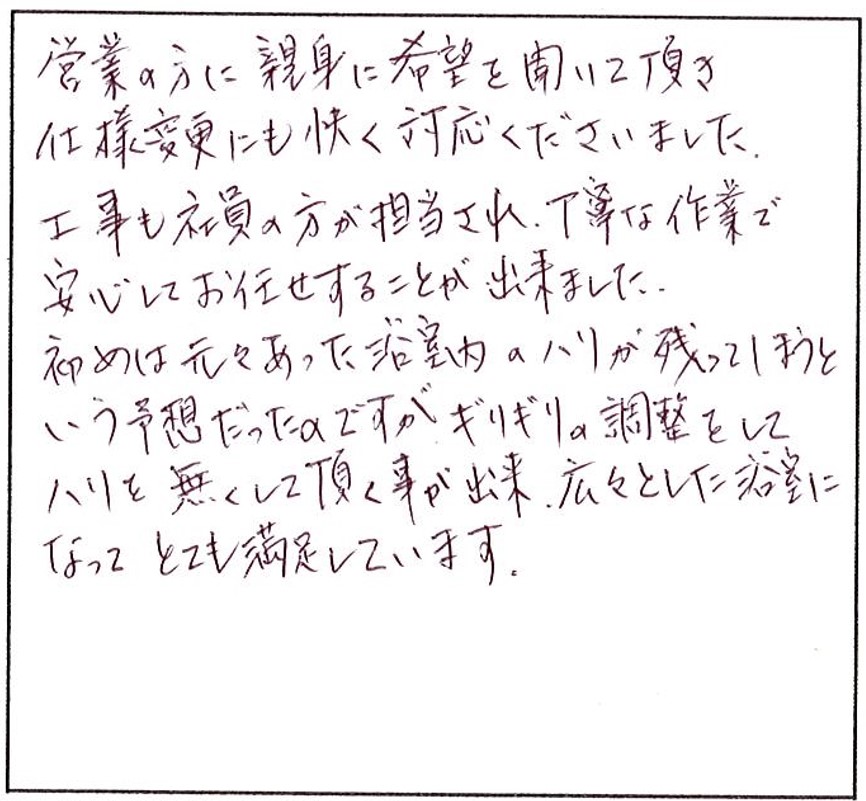 営業の方に親身に希望を聞いて頂き
仕様変更にも快く対応くださいました.
工事も社員の方が担当され、丁寧な作業で
安心してお任せすることが出来ました.
初めは元々あった浴室内のハリが残ってしまうと
いう予想だったのですが ギリギリの調整をして
ハリを無くして頂く事が出来、広々とした浴室に
なって とても満足しています.